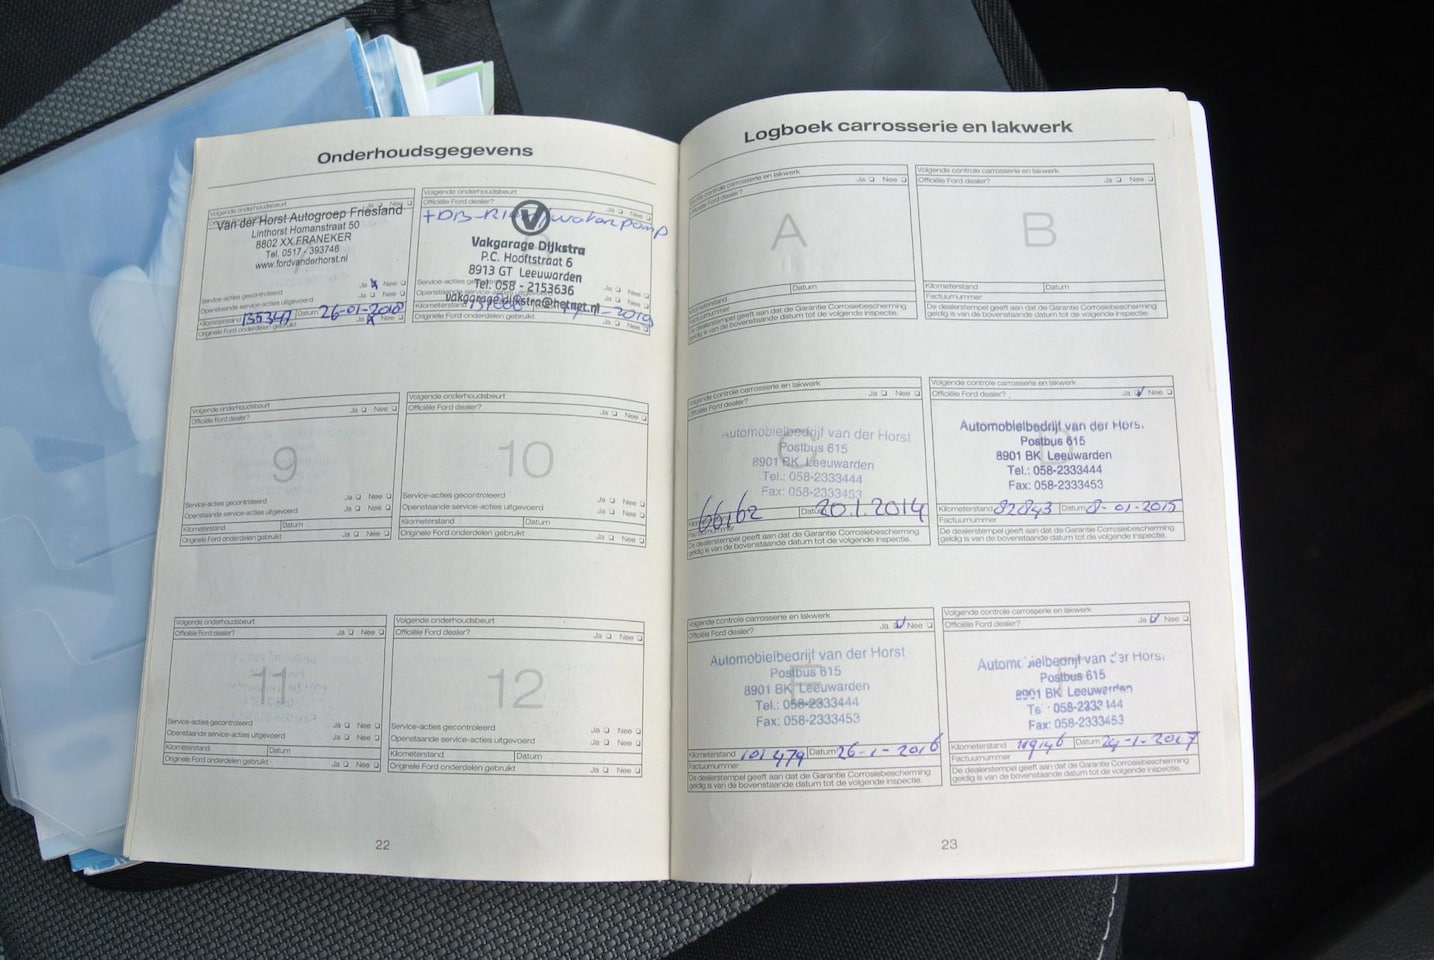 Onderhoudsgegevens
Volgende onderhoudsbeurt
Ja Nee
Van der Horst Autogroep Friesland
Linthorst Homanstraat 50
8802 XX FRANEKER
Tel. 0517 - 393746
www.fordvanderhorst.nl
Ja Nee
Service-acties gecontroleerd
Ja Nee
Openstaande service-acties uitgevoerd
Kilometerstand 135347 Datum 26-01-2018
Originele Ford onderdelen gebruikt Ja Nee
Volgende onderhoudsbeurt
Officiële Ford dealer? Ja Nee
waterpomp
Vakgarage Dijkstra
P.C. Hooftstraat 6
8913 GT Leeuwarden
Tel. 058 - 2153636
vakgarage.dijkstra@hetnet.nl
Originele Ford onderdelen gebruikt Ja Nee
Volgende onderhoudsbeurt
Officiële Ford dealer? Ja Nee
9
Service-acties gecontroleerd Ja Nee
Openstaande service-acties uitgevoerd Ja Nee
Kilometerstand Datum
Originele Ford onderdelen gebruikt Ja Nee
Volgende onderhoudsbeurt
Officiële Ford dealer? Ja Nee
10
Service-acties gecontroleerd Ja Nee
Openstaande service-acties uitgevoerd Ja Nee
Kilometerstand Datum
Originele Ford onderdelen gebruikt Ja Nee
Volgende onderhoudsbeurt
Officiële Ford dealer? Ja Nee
11
Service-acties gecontroleerd Ja Nee
Openstaande service-acties uitgevoerd Ja Nee
Kilometerstand Datum
Originele Ford onderdelen gebruikt Ja Nee
Volgende onderhoudsbeurt
Officiële Ford dealer? Ja Nee
12
Service-acties gecontroleerd Ja Nee
Openstaande service-acties uitgevoerd Ja Nee
Kilometerstand Datum
Originele Ford onderdelen gebruikt Ja Nee
22
Logboek carrosserie en lakwerk
Volgende controle carrosserie en lakwerk
Officiële Ford dealer? Ja Nee
A
Kilometerstand Datum
Factuurnummer
De dealerstempel geeft aan dat de Garantie Corrosiebescherming
geldig is van de bovenstaande datum tot de volgende inspectie.
Volgende controle carrosserie en lakwerk
Officiële Ford dealer? Ja Nee
B
Kilometerstand Datum
Factuurnummer
De dealerstempel geeft aan dat de Garantie Corrosiebescherming
geldig is van de bovenstaande datum tot de volgende inspectie.
Volgende controle carrosserie en lakwerk
Officiële Ford dealer? Ja Nee
C
Automobielbedrijf van der Horst
Postbus 615
8901 BK Leeuwarden
Tel.: 058-2333444
Fax: 058-2333453
66162 Datum 20.1.2014
Factuurnummer
De dealerstempel geeft aan dat de Garantie Corrosiebescherming
geldig is van de bovenstaande datum tot de volgende inspectie.
Volgende controle carrosserie en lakwerk
Officiële Ford dealer? Ja Nee
Automobielbedrijf van der Hors.
Postbus 615
8901 BK Leeuwarden
Tel.: 058-2333444
Fax: 058-2333453
Kilometerstand 82843 Datum 8-01-2015
Factuurnummer
De dealerstempel geeft aan dat de Garantie Corrosiebescherming
geldig is van de bovenstaande datum tot de volgende inspectie.
Volgende controle carrosserie en lakwerk
Officiële Ford dealer? Ja Nee
E
Automobielbedrijf van der Horst
Postbus 615
8901 BK Leeuwarden
Tel.: 058-2333444
Fax: 058-2333453
Kilometerstand 101479 Datum 26-1-2016
Factuurnummer
De dealerstempel geeft aan dat de Garantie Corrosiebescherming
geldig is van de bovenstaande datum tot de volgende inspectie.
Volgende controle carrosserie en lakwerk
Officiële Ford dealer? Ja Nee
Automobielbedrijf van der Horst
Postbus 615
8901 BK Leeuwarden
058-2333444
Fax: 058-2333453
Kilometerstand 119146 Datum 24-1-2017
Factuurnummer
De dealerstempel geeft aan dat de Garantie Corrosiebescherming
geldig is van de bovenstaande datum tot de volgende inspectie.
23